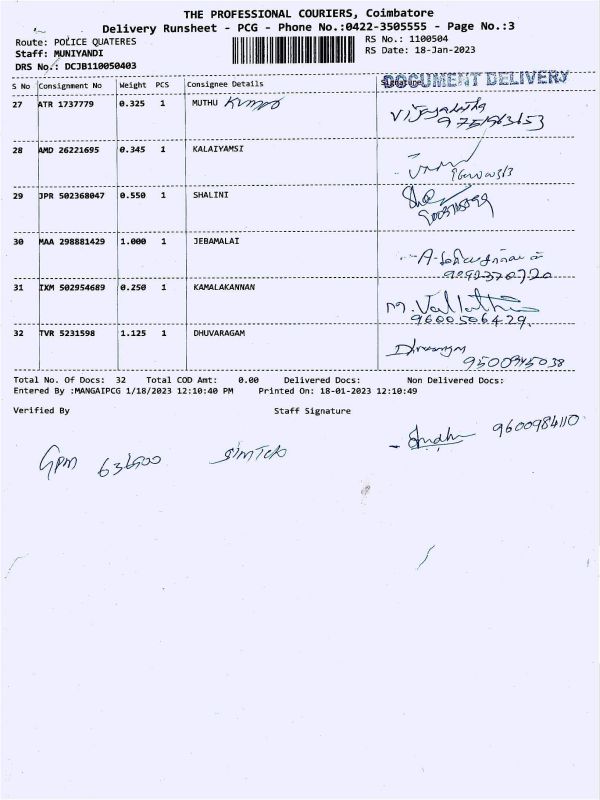 THE PROFESSIONAL COURIERS, Coimbatore
Delivery Runsheet - PCG - Phone No.:0422-3505555 - Page No.:3
Route: POLICE QUATERES
RS No.: 1100504
Staff: MUNIYANDI
RS Date: 18-Jan-2023
DRS No.: DCJB110050403
S No Consignment No Weight PCS Consignee Details Signature
DOCUMENT DELIVERY
27 ATR 1737779 0.325 1 MUTHU Kumar
28 AMD 26221695 0.345 1 KALAIYAMSI
29 JPR 502368047 0.550 1 SHALINI
30 MAA 298881429 1.000 1 JEBAMALAI
31 IXM 502954689 0.250 1 KAMALAKANNAN
9600506429
32 TVR 5231598 1.125 1 DHUVARAGAM
9500945038
Total No. Of Docs: 32 Total COD Amt: 0.00 Delivered Docs: Non Delivered Docs:
Entered By :MANGAIPCG 1/18/2023 12:10:40 PM Printed On: 18-01-2023 12:10:49
Verified By Staff Signature
9600984110